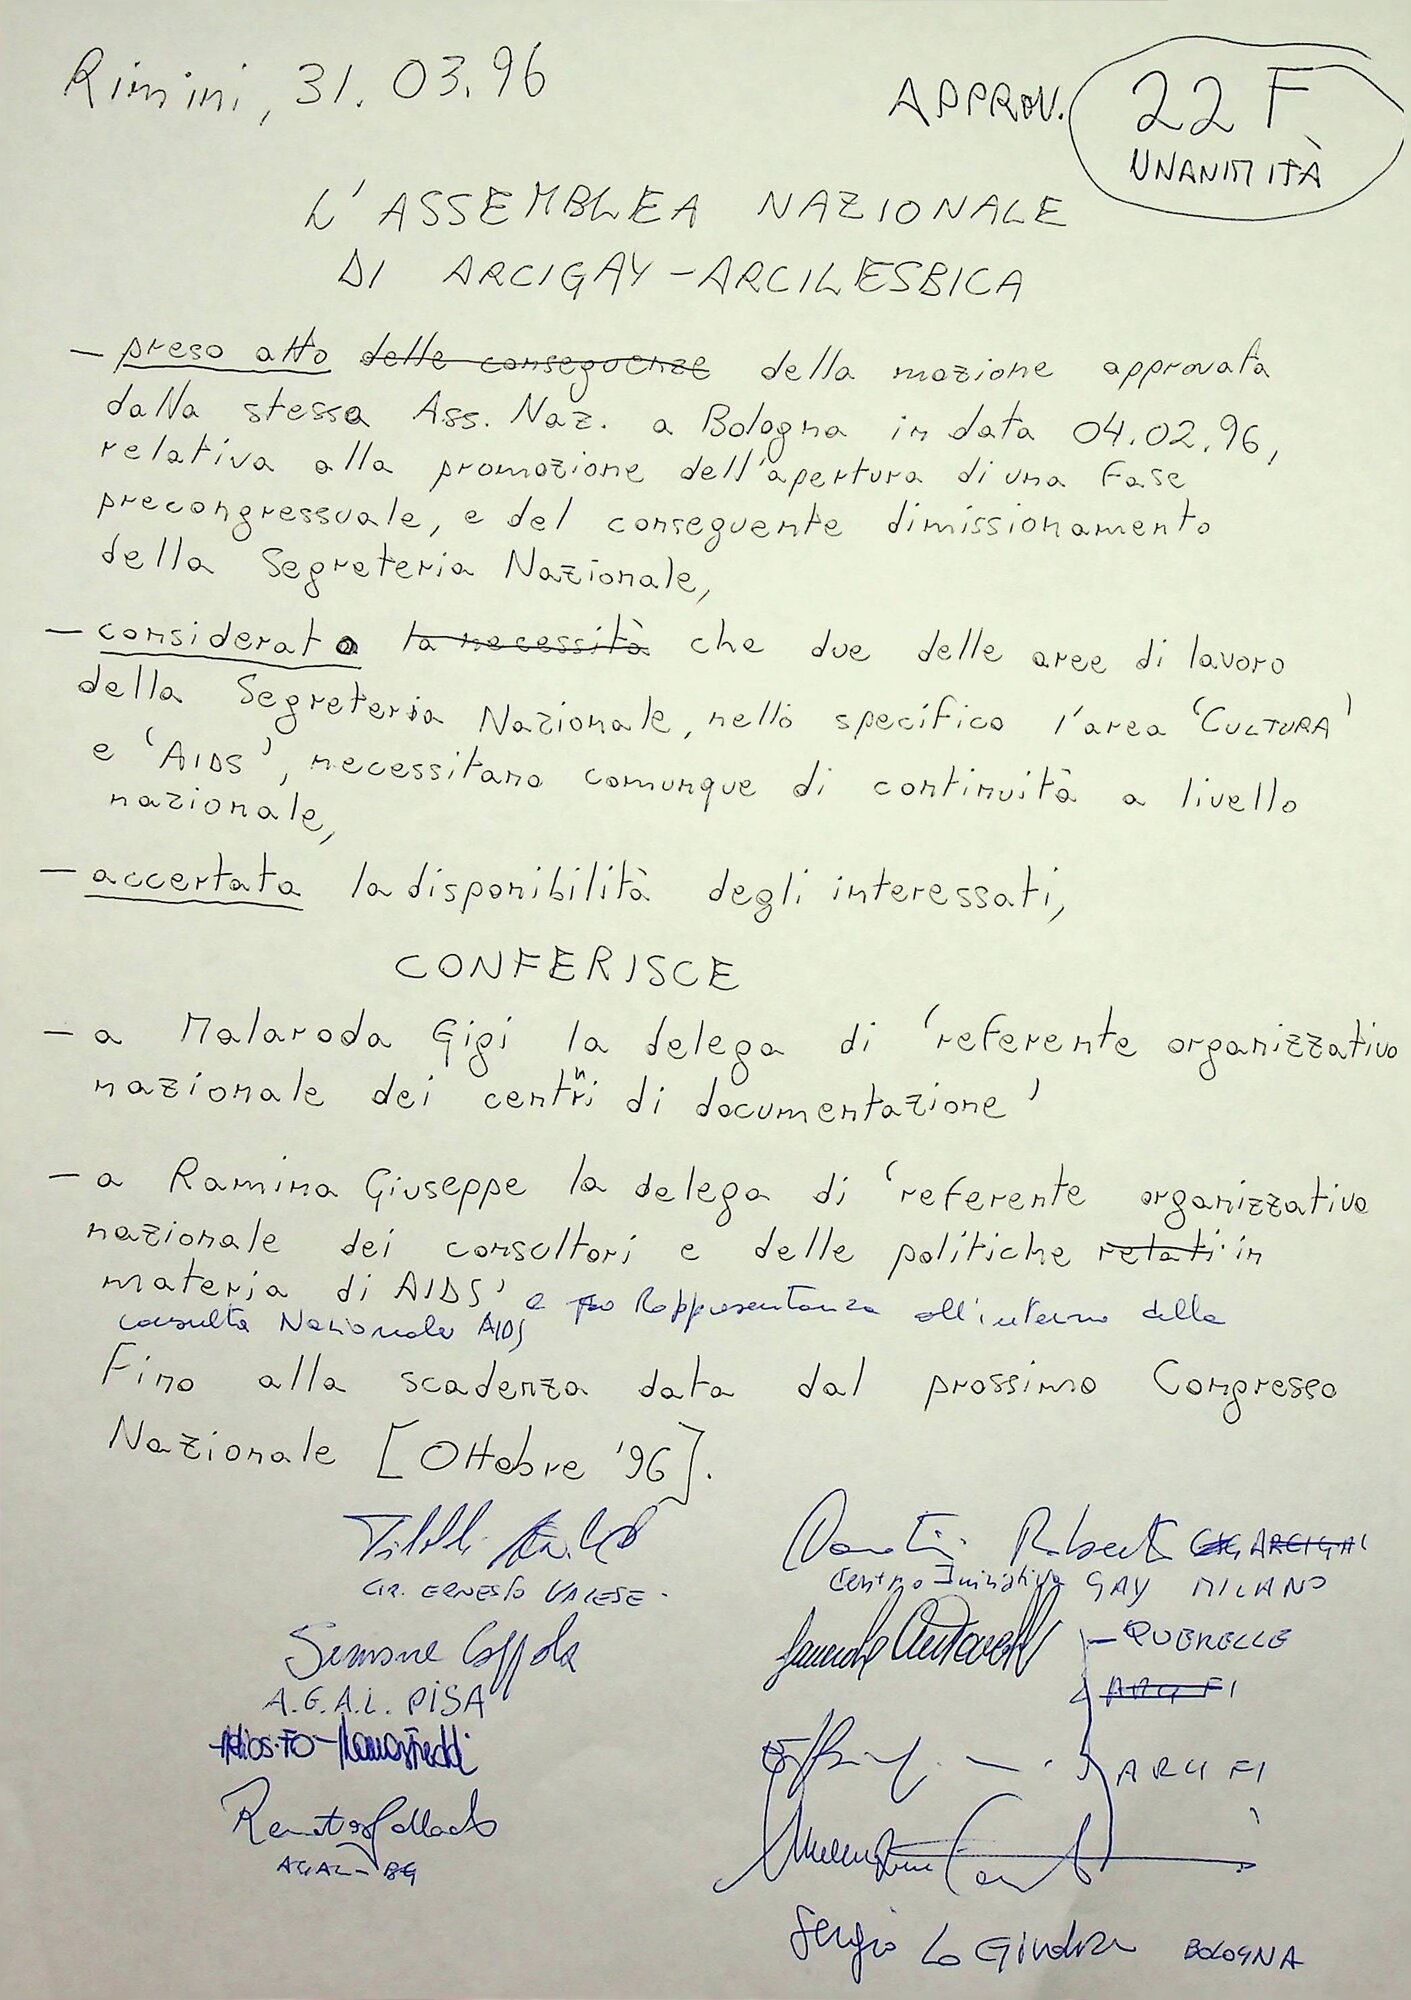 Rimini, 31.03.96
APPROV. 22 F
UNANIMITÀ
L'ASSEMBLEA NAZIONALE
DI ARCIGAY-ARCILESBICA
- preso atto delle conseguenze della mozione approvata
dalla stessa Ass. Naz. a Bologna in data 04.02.96,
relativa alla promozione dell'apertura di una fase
precongressuale, e del conseguente dimissionamento
della Segreteria Nazionale,
- considerato la necessità che due delle aree di lavoro
della Segreteria Nazionale, nello specifico l'area 'CULTURA'
e 'AIDS', necessitano comunque di continuità a livello
nazionale,
- accertata la disponibilità degli interessati,
CONFERISCE
- a Malaroda Gigi la delega di 'referente organizzativo
nazionale dei centri di documentazione'
- a Ramina Giuseppe la delega di 'referente organizzativo
nazionale dei consultori e delle politiche relati in
materia di AIDS' e Rappresentanza all'interno della
consulta Nazionale AIDS
Fino alla scadenza data dal prossimo Congresso
Nazionale [Ottobre '96].
CIR. ERNESTO VARESE
Centro Iniziativa GAY MILANO
ARCIGAI
Simone Coppola
A.G.A.L. PISA
- QUERELLE
ARCI FI
Renato
AGAL - BG
Sergio Lo Giudice BOLOGNA